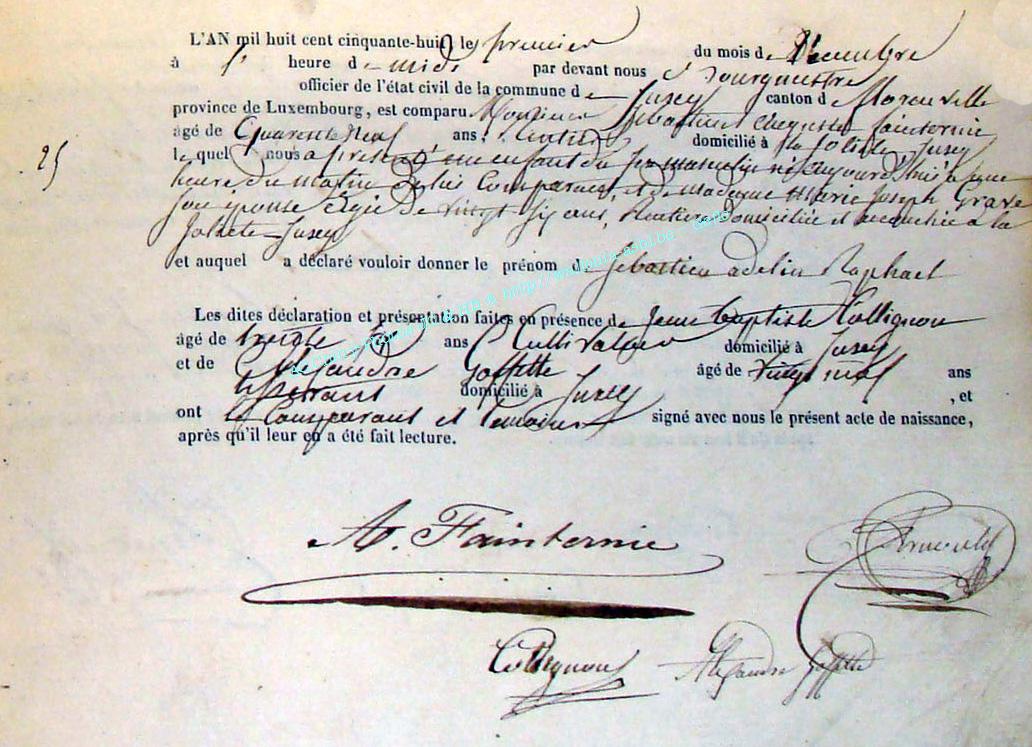 L'AN mil huit cent cinquante-huit le premier du mois de Décembre
à heure de midi par devant nous Bourgmestre
officier de l'état civil de la commune de Jusey canton de
province de Luxembourg, est comparu Monsieur Sébastien Fainternie
âgé de Quarante neuf ans, Rentier domicilié à la Joliète Jusey
25
le quel nous a présenté un enfant du sexe masculin né aujourd'hui à une
heure du matin de lui Comparant, et de madame Marie Joseph Grave
son épouse agée de vingt six ans, Rentière domiciliée et accouchée à la
Joliète Jusey
et auquel a déclaré vouloir donner le prénom de Sébastien adelin Raphael
Les dites déclaration et présentation faites en présence de Jean Baptiste Collignon
âgé de trente ans Cultivateur domicilié à Jusey
et de Alexandre Goffette âgé de vingt neuf ans
domicilié à Jusey , et
ont le Comparant et temoins signé avec nous le présent acte de naissance,
après qu'il leur en a été fait lecture.
A. Fainternie
Collignon Alexandre Goffette